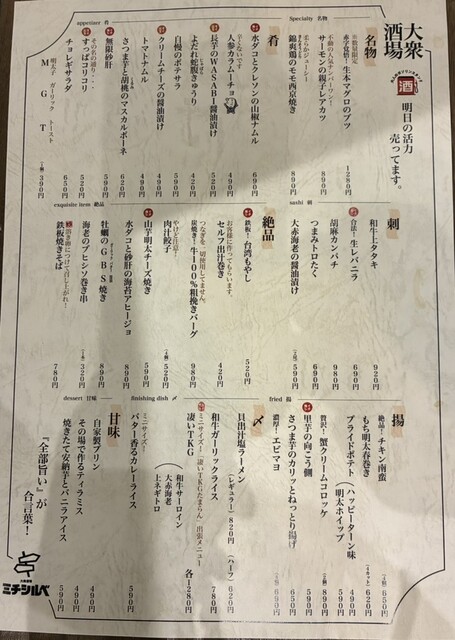 大衆酒場
人と街のソウルスポット
酒
明日の活力
売ってます。
Specialty 名物
名物
※数量限定
赤字覚悟！生本マグロのブツ 1280円
不動の人気ナンバーワン！
サーモンの親子レアカツ 890円
柔らかジューシー
錦爽鶏のモモ西京焼き 890円
appetizer 肴
肴
水ダコとクレソンの山椒ナムル 690円
辛くないです
人参カラムーチョ 420円
長芋のWASABI醤油漬け 520円
よだれ蛇腹きゅうり 420円
自慢のポテサラ 590円
クリームチーズの醤油漬け 490円
トマトナムル 490円
さつま芋と胡桃のマスカルポーネ 620円
無限砂肝 590円
その名の通り…
すっぱコリコリ 520円
チョレギサラダ 650円
MGT
明太子 ガーリック トースト
(1個) 390円
sashi 刺
刺
和牛上タタキ 980円
合法！生レバニラ 690円
胡麻カンパチ 980円
つまみトロたく 690円
大赤海老の醤油漬け (1尾) 590円
exquisite item 絶品
絶品
鉄板！台湾もやし 520円
お客様に作ってもらいます。
セルフ出汁巻き 420円
つなぎを一切使用してません。
炭焼き！牛100%粗挽きバーグ 980円
やけど注意！
肉汁餃子 520円
山芋明太チーズ焼き 590円
水ダコと砂肝の海苔アヒージョ 890円
牡蠣のGBS焼き 890円
海老のブヒシソ巻き串 (1本) 320円
溶き卵につけて召し上がれ！
鉄板焼きそば 780円
fried 揚
揚
絶品！チキン南蛮 650円
もち明太春巻き 620円
フライドポテト（ハッピーターン味 明太ホイップ 490円
贅沢！蟹クリームコロッケ 890円
里芋の向こう側 590円
さつま芋のカリッとねっとり揚げ 650円
濃厚！エビマヨ 690円
finishing dish 〆
〆
貝出汁塩ラーメン (レギュラー)820円 (ハーフ)620円
和牛ガーリックライス 780円
ミニサイズ！「凄いTKGたまらん」出張メニュー
凄いTKG 和牛サーロイン 大赤海老 上ネギトロ 各1280円
ミニサイズ！
バター香るカレーライス 590円
dessert 甘味
甘味
自家製プリン 490円
その場で作るティラミス 490円
焼きたて安納芋とバニラアイス 590円
『全部旨い』が
合言葉！
大衆酒場
ミチシルベ